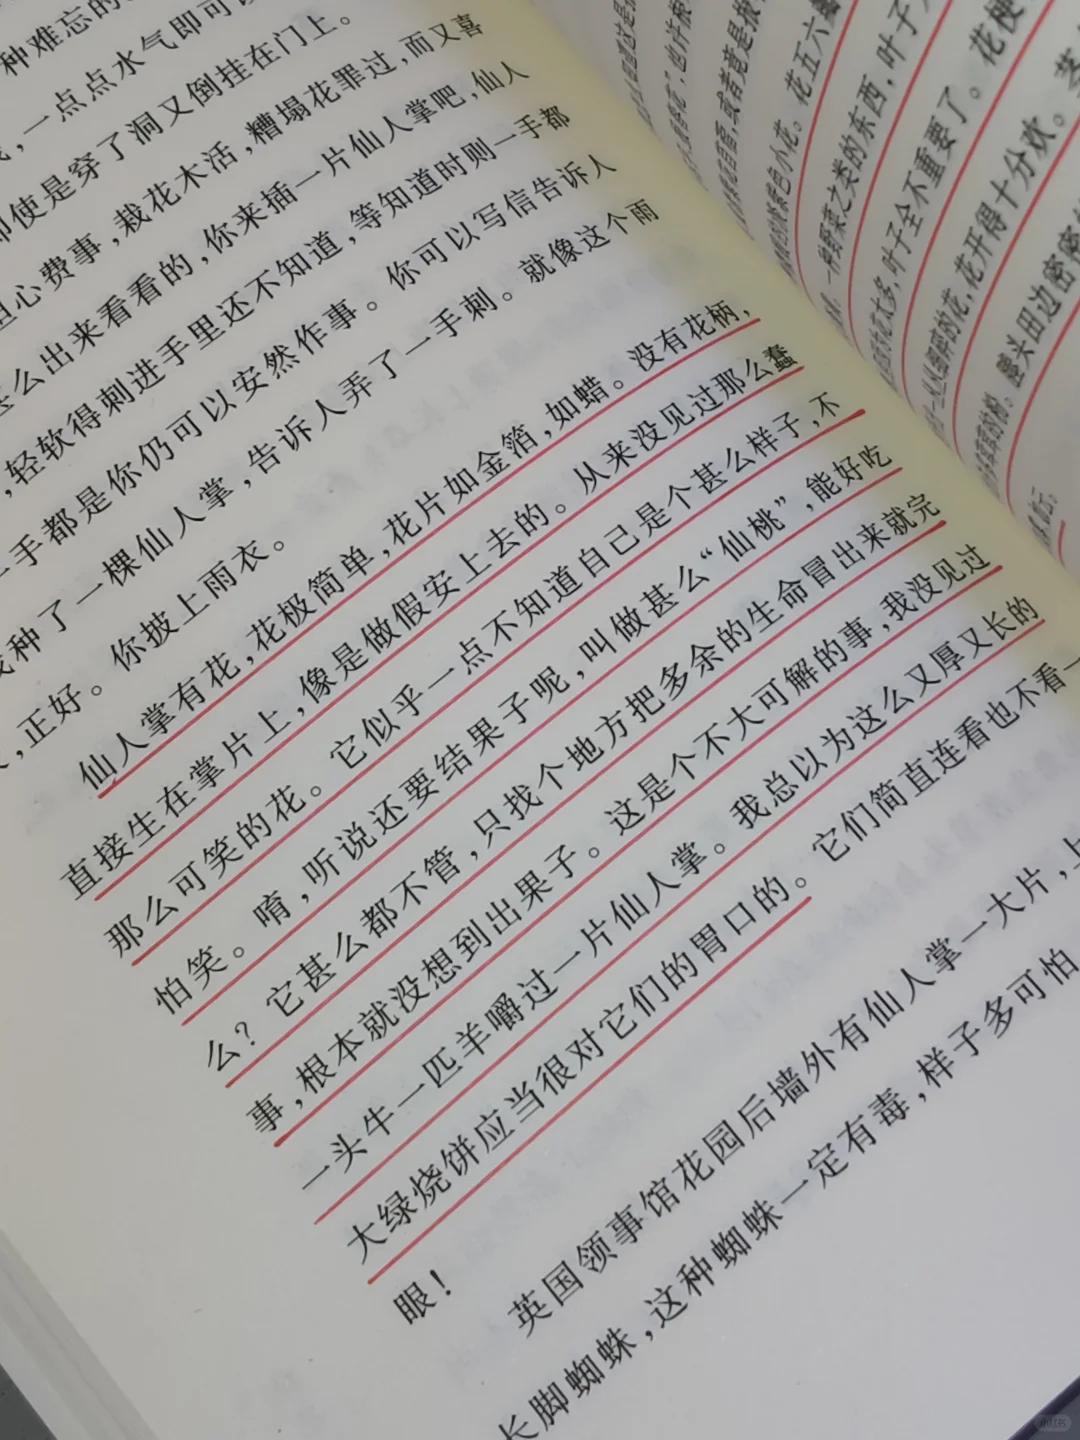 种难忘的
，一点点水气即可
即使是穿了洞又倒挂在门上。
担心费事，栽花木活，糟塌花罪过，而又喜
么出来看看的，你来插一片仙人掌吧，仙人
，轻软得刺进手里还不知道，等知道时则一手都
一手都是你仍可以安然作事。你可以写信告诉人
我种了一棵仙人掌，告诉人弄了一手刺。就像这个雨
，正好。你披上雨衣。
仙人掌有花，花极简单，花片如金箔，如蜡。没有花柄，
直接生在掌片上，像是做假安上去的。从来没见过那么蠢
那么可笑的花。它似乎一点不知道自己是个甚么样子，不
怕笑。唷，听说还要结果子呢，叫做甚么“仙桃”，能好吃
么？它甚么都不管，只找个地方把多余的生命冒出来就完
事，根本就没想到出果子。这是个不大可解的事，我没见过
一头牛一匹羊嚼过一片仙人掌。我总以为这么又厚又长的
大绿烧饼应当很对它们的胃口的。它们简直连看也不看一
眼！
英国领事馆花园后墙外有仙人掌一大片，上
长脚蜘蛛，这种蜘蛛一定有毒，样子多可怕
色小花。花五六瓣
一种野菜之类的东西，叶子
太多，叶子全不重要了。花梗
的花，花开得十分欢。茎
田边密密
小红书